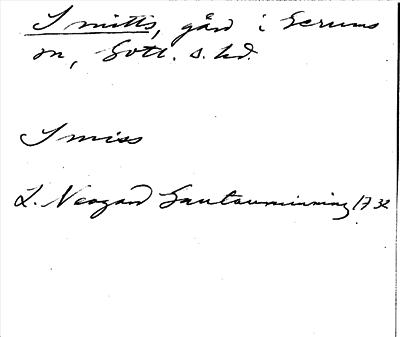 Smitts, gård i Gerums
sn, Gotl. s. hd.
Smiss
L. Neogard Gautauminning 1732